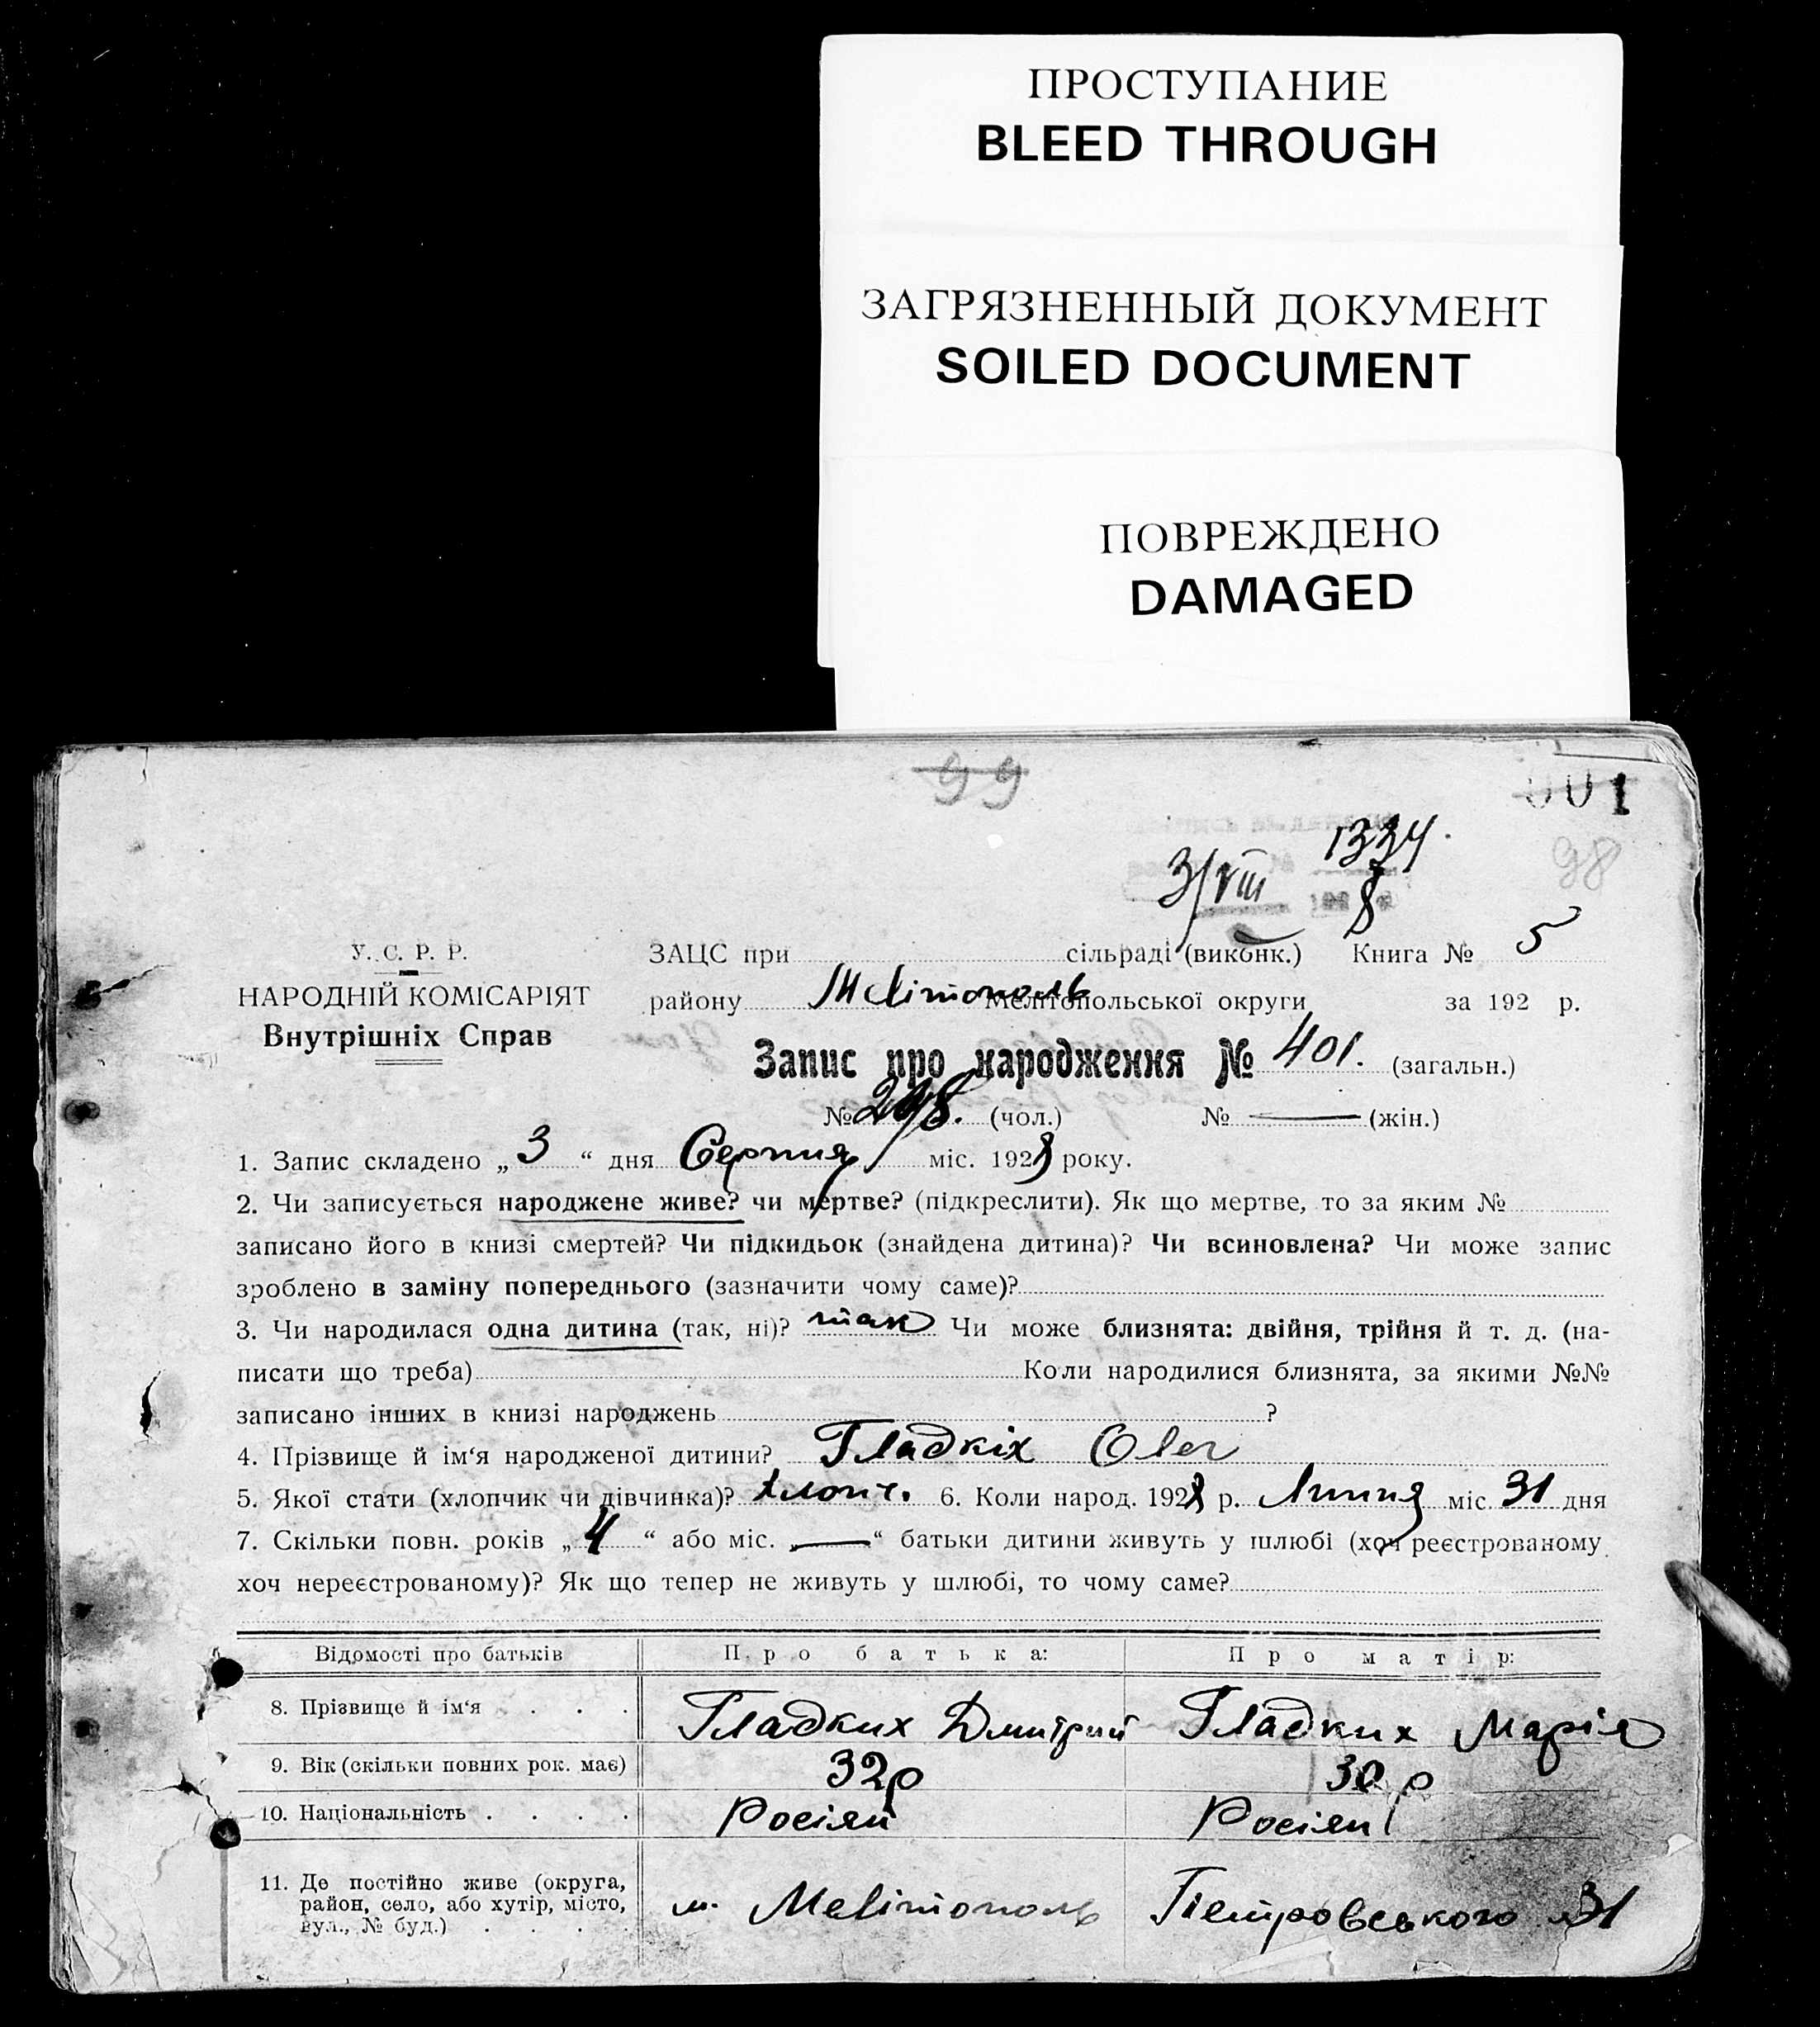 ПРОСТУПАНИЕ
BLEED THROUGH
ЗАГРЯЗНЕННЫЙ ДОКУМЕНТ
SOILED DOCUMENT
ПОВРЕЖДЕНО
DAMAGED
99
001
1334.
98
3/VIII
8
У. С. Р. Р.
НАРОДНІЙ КОМІСАРІЯТ
Внутрішніх Справ
ЗАЦС при сільраді (виконк.) Книга № 5
району Мелітополь Мелітопольської округи за 192 р.
Запис про народження № 401. (загальн.)
№ 298. (чол.) № — (жін.)
1. Запис складено „ 3 “ дня Серпня міс. 1928 року.
2. Чи записується народжене живе? чи мертве? (підкреслити). Як що мертве, то за яким №
записано його в книзі смертей? Чи підкидьок (знайдена дитина)? Чи всиновлена? Чи може запис
зроблено в заміну попереднього (зазначити чому саме)?
3. Чи народилася одна дитина (так, ні)? так Чи може близнята: двійня, трійня й т. д. (на-
писати що треба) Коли народилися близнята, за якими №№
записано інших в книзі народжень ?
4. Прізвище й ім‘я народженої дитини? Гладкіх Олег
5. Якої стати (хлопчик чи дівчинка)? хлопч. 6. Коли народ. 1928 р. Липня міс. 31 дня
7. Скільки повн. років „ 4 “ або міс. „ — “ батьки дитини живуть у шлюбі (хоч реєстрованому
хоч нереєстрованому)? Як що тепер не живуть у шлюбі, то чому саме?
Відомості про батьків Про батька: Про матір:
8. Прізвище й ім‘я . . . Гладких Дмитрий Гладких Марія
9. Вік (скільки повних рок. має) 32р 30 р
10. Національність . . . . Росіян Росіян
11. Де постійно живе (округа,
район, село, або хутір, місто,
вул., № буд.) . . . . м. Мелітополь Петровського 31